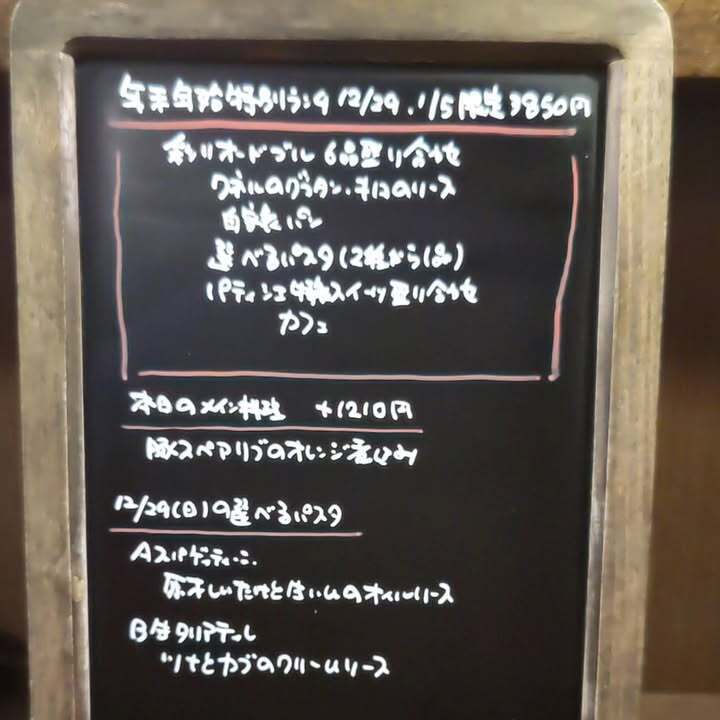 年末年始特別ランチ 12/29.1/5限定3850円
彩りオードブル 6品盛り合わせ
クネルのグラタン.キロのソース
自家製パン
選べるパスタ(2種から1品)
パティシエ特製スイーツ盛り合わせ
カフェ
本日のメイン料理 +1210円
豚スペアリブのオレンジ煮込み
12/29(日)の選べるパスタ
Aスパゲッティーニ
原木しいたけと生ハムのオイルソース
B生タリアテッレ
ツナとカブのクリームソース